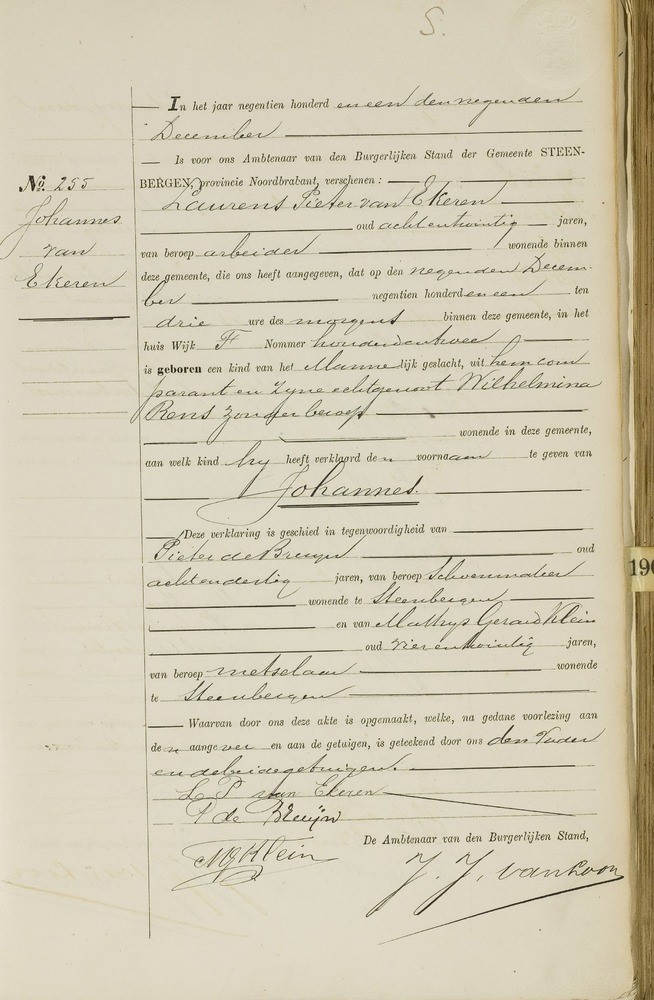 S.
In het jaar negentien honderd en een den negenden
December
Is voor ons Ambtenaar van den Burgerlijken Stand der Gemeente STEEN-
No. 255
BERGEN, provincie Noordbrabant, verschenen:
Johannes
van
Ekeren
Laurens Pieter van Ekeren
oud achtentwintig jaren,
van beroep arbeider wonende binnen
deze gemeente, die ons heeft aangegeven, dat op den negenden Decem-
ber negentien honderd en een ten
drie ure des morgens binnen deze gemeente, in het
huis Wijk F Nommer honderdentwee
is geboren een kind van het Mannelijk geslacht, uit hem com
parant en zyne echtgenoot Wilhelmina
Rens zonder beroep
wonende in deze gemeente,
aan welk kind hy heeft verklaard den voornaam te geven van
Johannes.
Deze verklaring is geschied in tegenwoordigheid van
Pieter de Bruyn oud
achtendertig jaren, van beroep Schoenmaker
wonende te Steenbergen
en van Mathys Gerard Klein
oud vierentwintig jaren,
van beroep metselaar wonende
te Steenbergen
Waarvan door ons deze akte is opgemaakt, welke, na gedane voorlezing aan
den aangever en aan de getuigen, is geteekend door ons den Vader
en de beide getuigen.
L P van Ekeren
P de Bruijn
De Ambtenaar van den Burgerlijken Stand,
MG Klein
J. J. van Loon
190